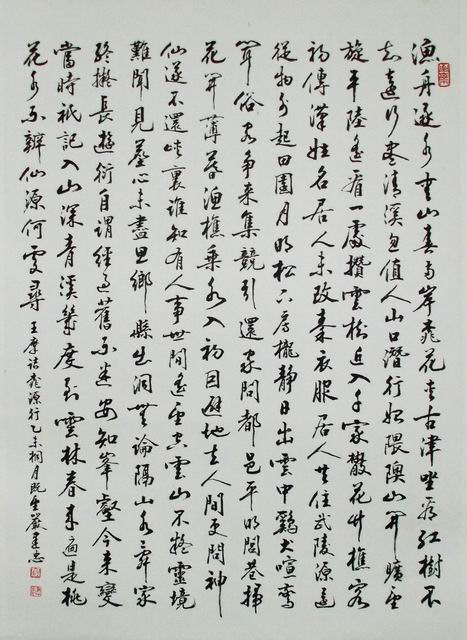 漁舟逐水愛山春兩岸桃花夾古津坐看紅樹不
知遠行盡清溪忽值人山口潛行始隈隩山開曠望
旋平陸遙看一處攢雲樹近入千家散花竹樵客
初傳漢姓名居人未改秦衣服居人共住武陵源還
從物外起田園月明松下房櫳靜日出雲中鷄犬喧驚
聞俗客爭來集競引還家問都邑平明閭巷掃
花開薄暮漁樵乘水入初因避地去人間更問神
仙遂不還峽裏誰知有人事世間遙望空雲山不疑靈境
難聞見塵心未盡思鄉縣出洞無論隔山水辭家
終擬長遊衍自謂經過舊不迷安知峯壑今來變
當時祇記入山深青溪幾度到雲林春來遍是桃
花水不辨仙源何處尋 王摩詰桃源行乙未桐月既望嚴建忠